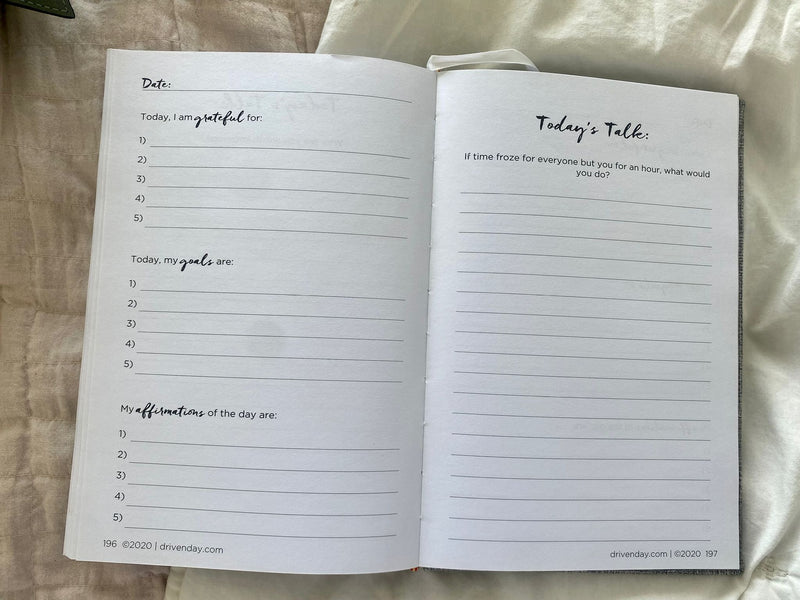 Date:
Today, I am grateful for:
1)
2)
3)
4)
5)
Today, my goals are:
1)
2)
3)
4)
5)
My affirmations of the day are:
1)
2)
3)
4)
5)
196 ©2020 | drivenday.com
Today's Talk:
If time froze for everyone but you for an hour, what would
you do?
drivenday.com | ©2020 197